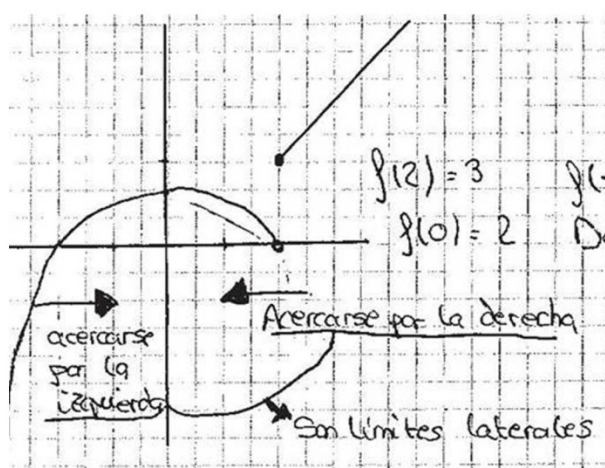 f(2) = 3 f(-
f(0) = 2 D
Acercarse por la derecha
acercarse
por la
izquierda
Son límites laterales